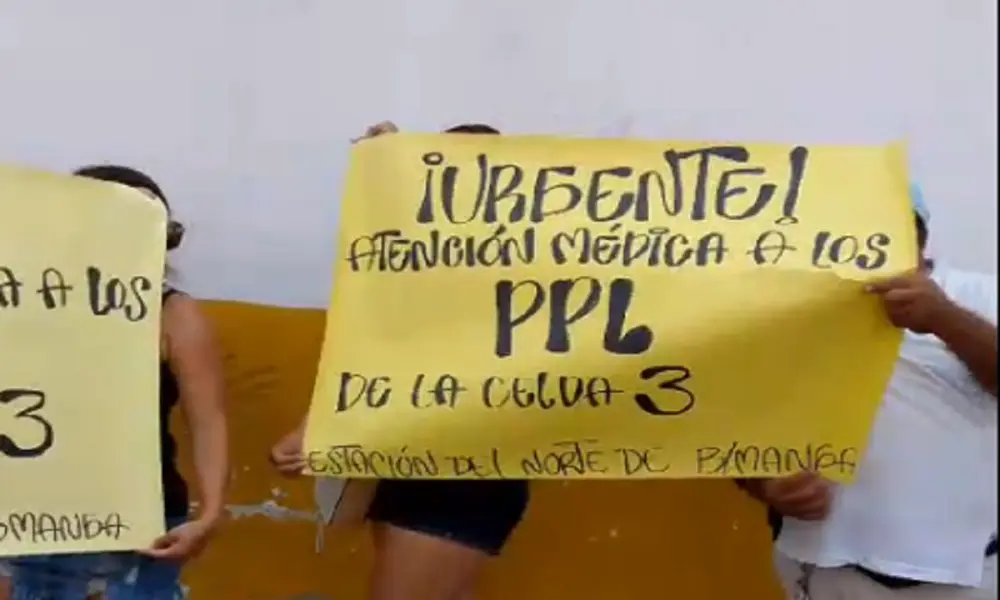 A A LOS
3
OMANGA
¡URGENTE!
ATENCIÓN MÉDICA A LOS
PPL
DE LA CELDA 3
ESTACIÓN DEL NORTE DE B/MANGA